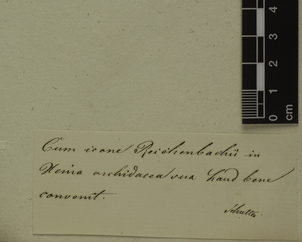 4
3
2
1
0
cm
Cum icone Reichenbachii in
Xenia orchidacea sua haud bene
convenit.
Schultz.